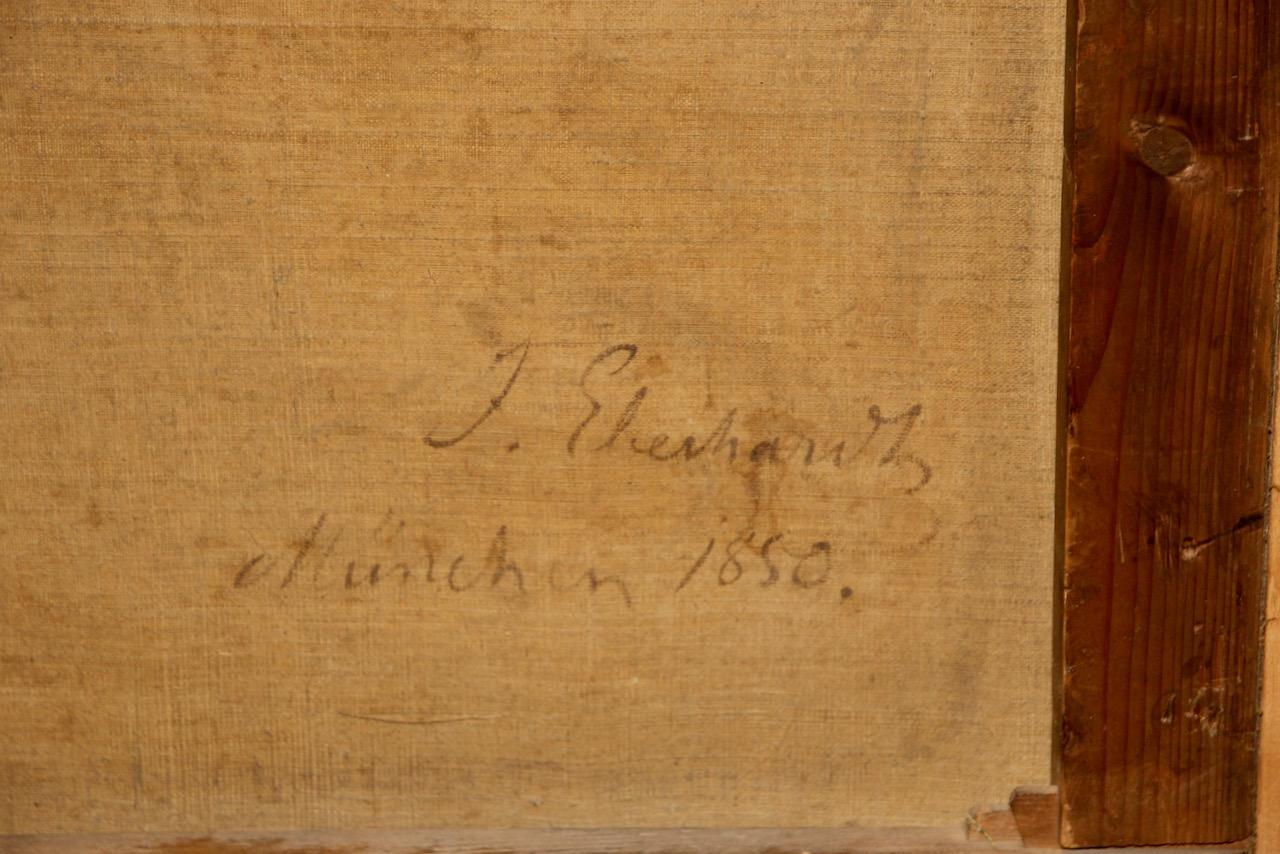 J. Eberhardt
München 1850.